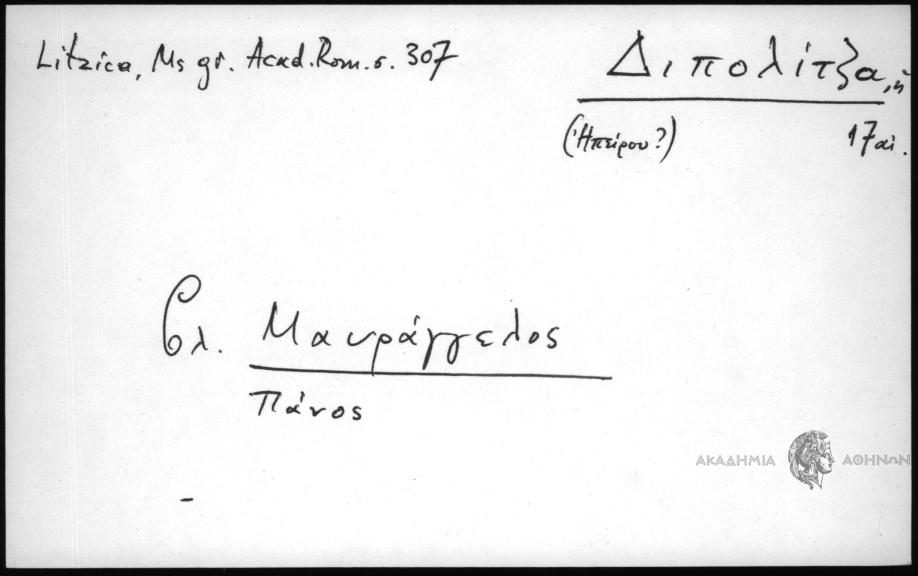 Litzica, Ms gr. Acad. Rom. s. 307
Διπολίτζα, ἡ
(Ἠπείρου?) 17 αἰ.
βλ. Μαυράγγελος
Πάνος
-
ΑΚΑΔΗΜΙΑ ΑΘΗΝΩΝ